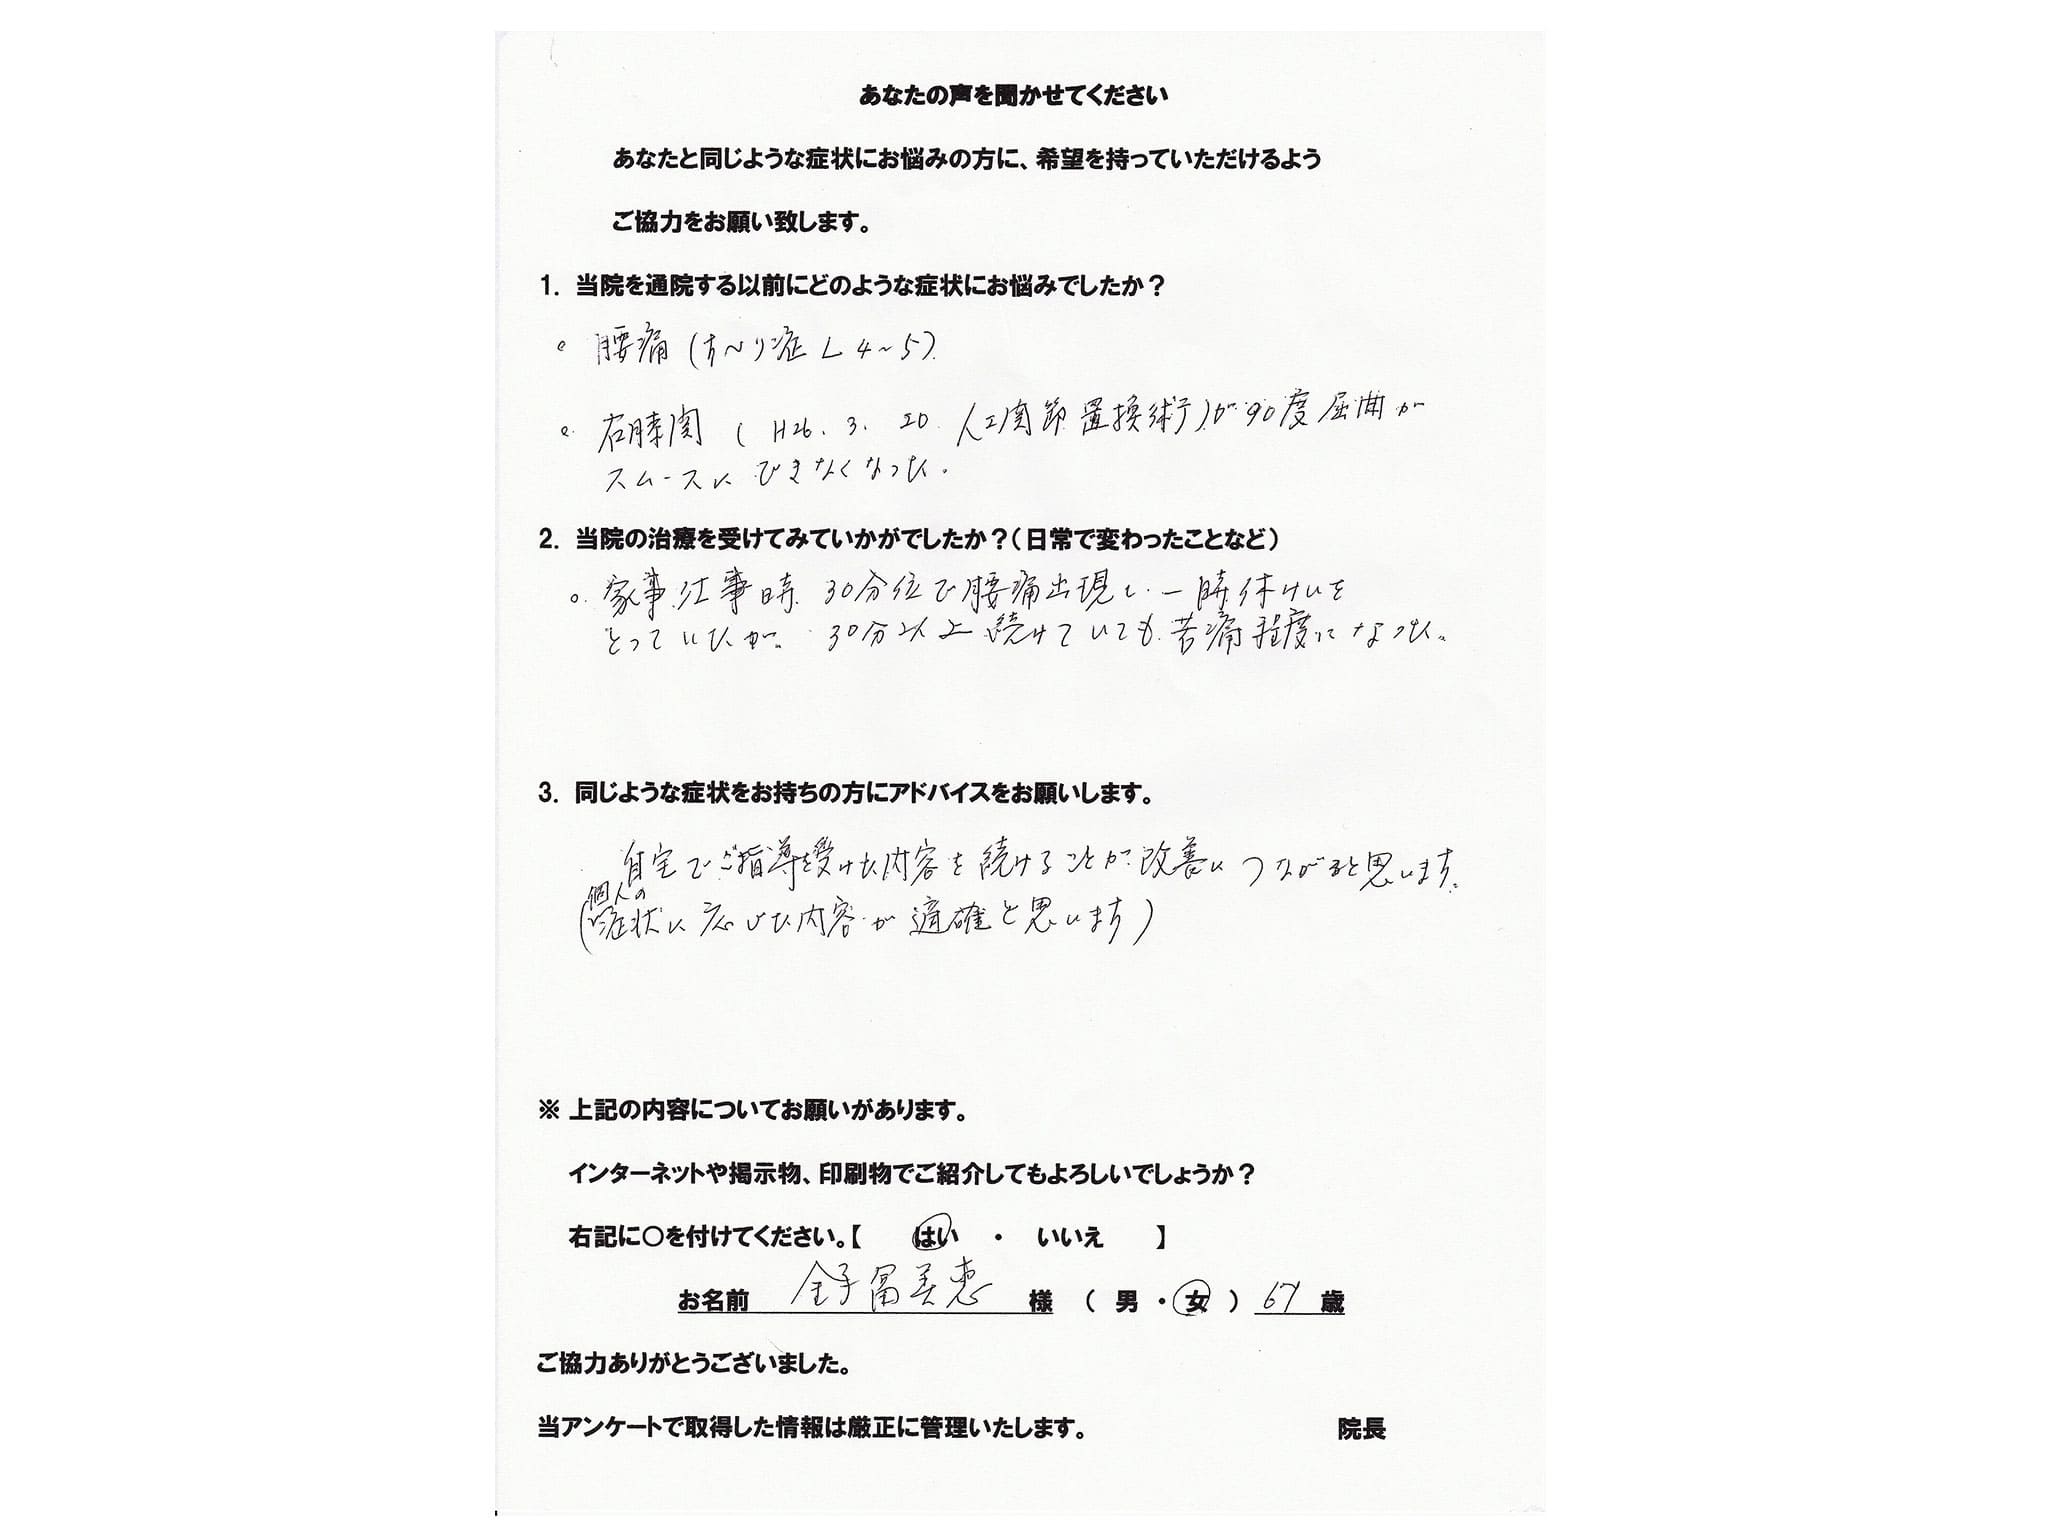 あなたの声を聞かせてください
あなたと同じような症状にお悩みの方に、希望を持っていただけるよう
ご協力をお願い致します。
1. 当院を通院する以前にどのような症状にお悩みでしたか？
。腰痛(すべり症L4~5)
。右膝関(H26.3.20.人工関節置換術)が90度屈曲が
スムースにできなくなった。
2. 当院の治療を受けてみていかがでしたか？(日常で変わったことなど)
。家事.仕事時.30分位で腰痛出現し.一時休けいを
とっていたが。30分以上続けていても.苦痛程度になった。
3. 同じような症状をお持ちの方にアドバイスをお願いします。
自宅でご指導を受けた内容を続けることが改善につながると思います。
(個人の症状に応じた内容が適確と思います)
※ 上記の内容についてお願いがあります。
インターネットや掲示物、印刷物でご紹介してもよろしいでしょうか？
右記に○を付けてください。【 はい ・ いいえ 】
お名前 金子冨美恵 様 ( 男 ・ 女 ) 67 歳
ご協力ありがとうございました。
当アンケートで取得した情報は厳正に管理いたします。 院長